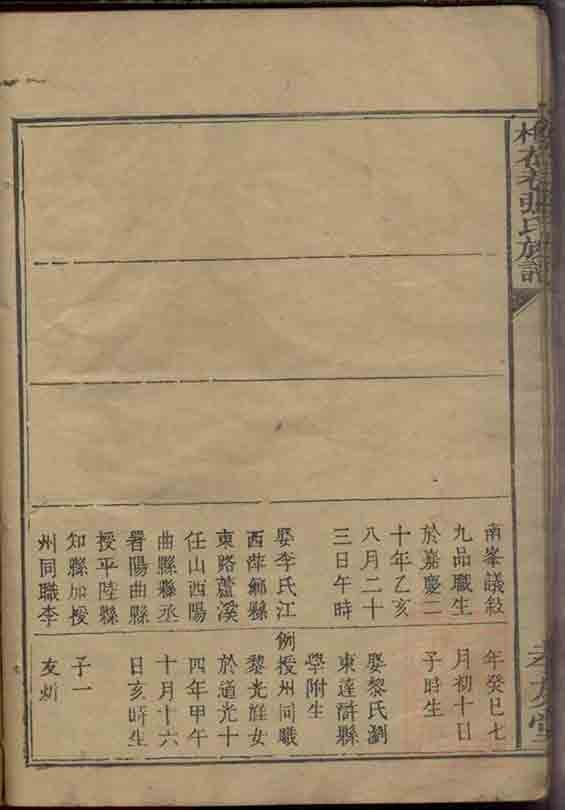 南峯議敘
九品職生
於嘉慶二
十年乙亥
八月二十
三日午時
娶李氏江
西萍鄉縣
東路蘆溪
任山西陽
曲縣縣丞
署陽曲縣
授平陸縣
知縣加授
州同職李
年癸巳七
月初十日
子時生
娶黎氏瀏
東達滸縣
學附生
例授州同職
黎光雔女
於道光十
四年甲午
十月十六
日亥時生
子一
友炘
衣張氏族譜
孝友堂